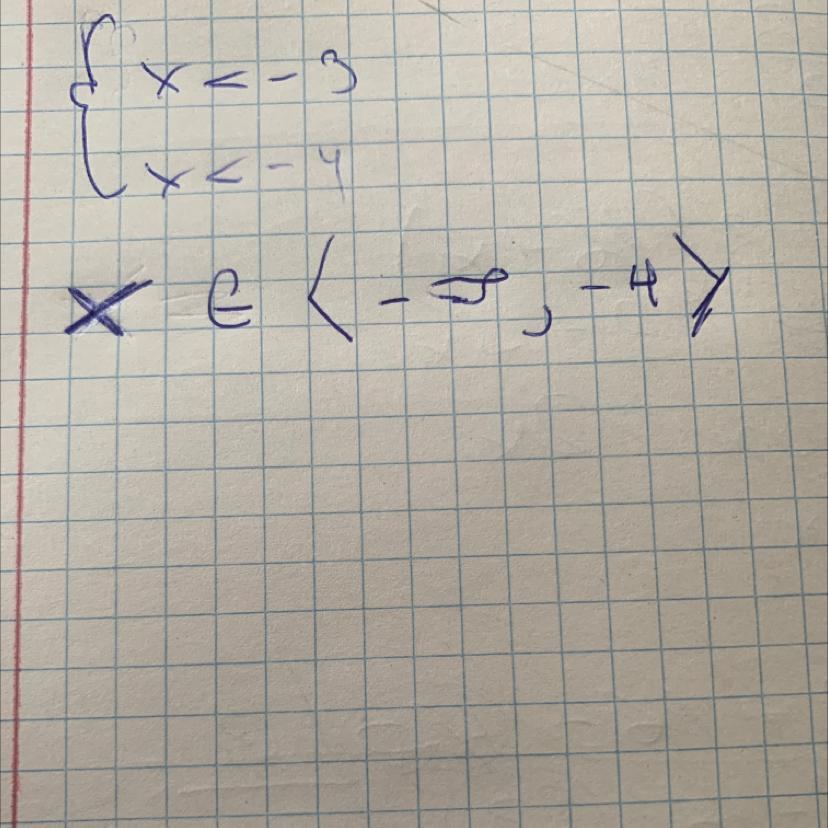 { x < - 3
x < - 4
x ∈ ⟨ - ∞ , - 4 ⟩